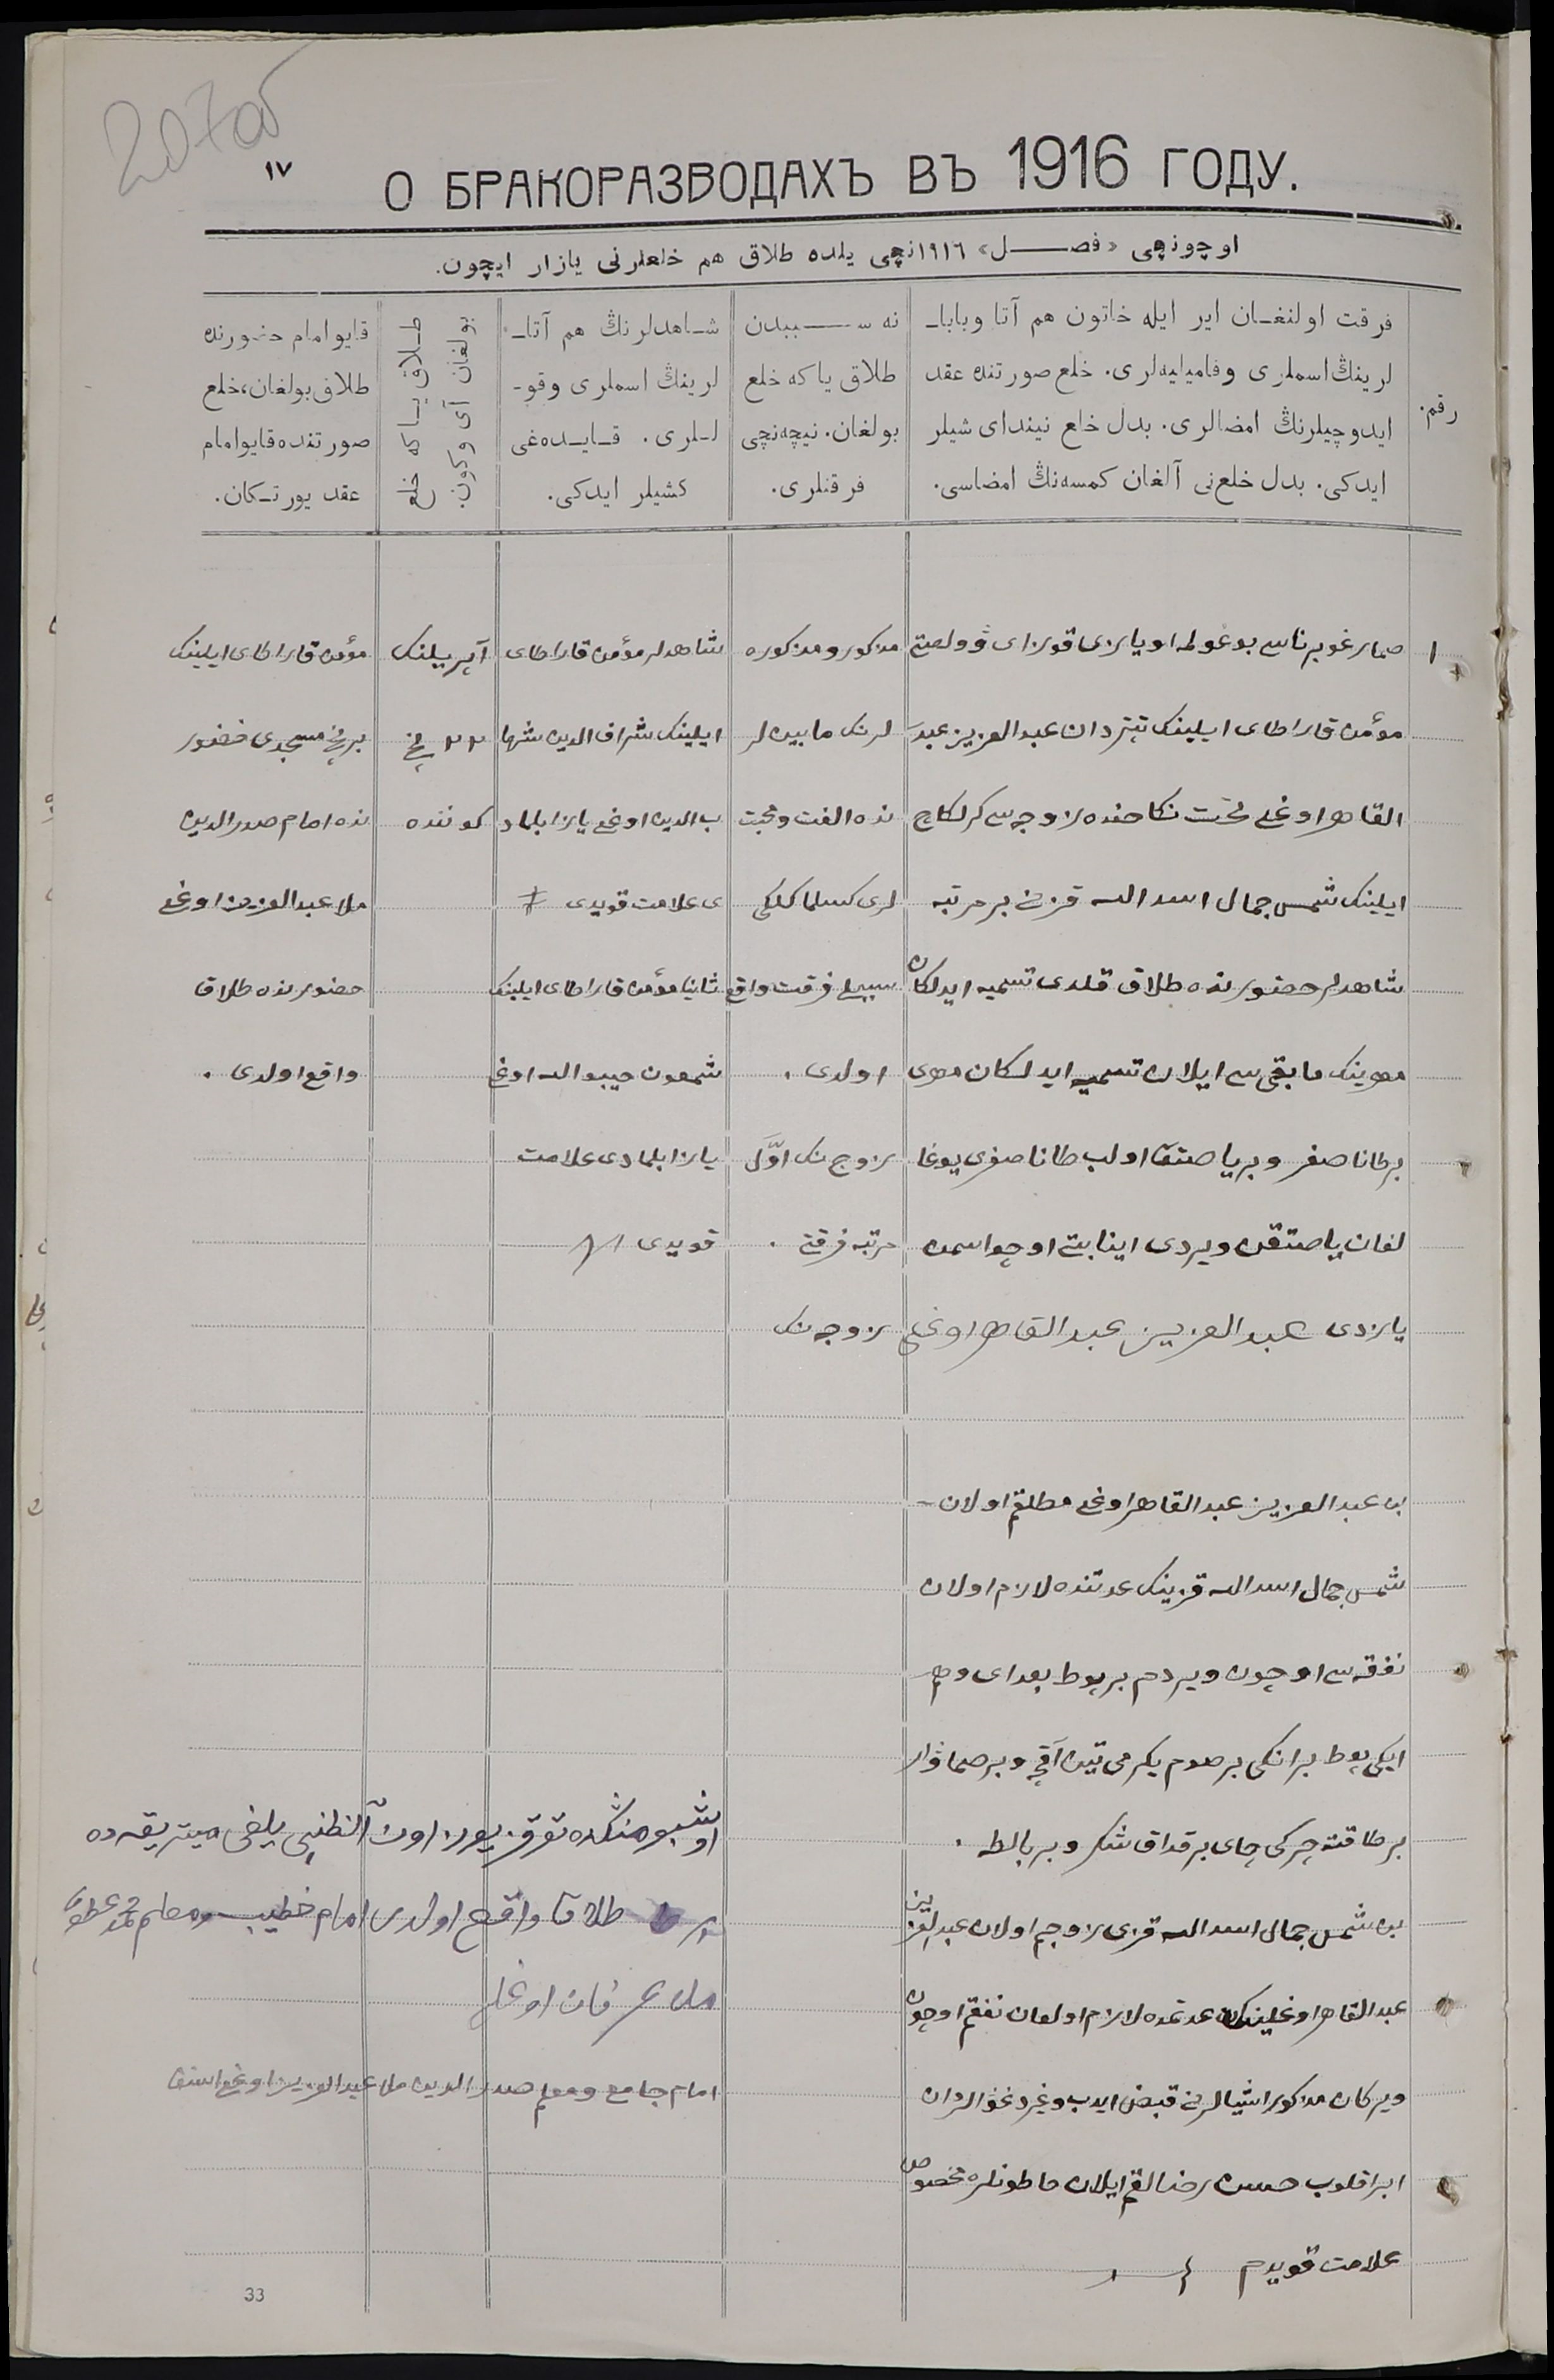 207об
١٧
О БРАКОРАЗВОДАХЪ ВЪ 1916 ГОДУ.
اوچونچی «فصل» ١٩١٦نچی یلده طلاق هم خلعلرنی یازار ایچون.
رقم.
فرقت اولنغان ایر ایله خاتون هم آتا وبابا-
لرینڭ اسملری وفامیلیه‌لری. خلع صورتنده عقد
ایدوچیلرنڭ امضالری. بدل خلع نیندای شیلر
ایدکی. بدل خلع‌نی آلغان کمسه‌نڭ امضاسی.
نه سببدن
طلاق یا که خلع
بولغان. نیچه‌نچی
فرقتلری.
شاهدلرنڭ هم آتا-
لرینڭ اسملری وقو-
للری. قایده‌غی
کشیلر ایدکی.
طلاق یا که خلع
بولغان آی وکون.
قایو امام حضورنده
طلاق بولغان، خلع
صورتنده قایو امام
عقد یورتکان.
١
صمار غوبرناسی بوغولمه اویازی قوزای وولصتی
مؤمن قاراطای ایلینک تپتردان عبدالعزیز عبد
القاهر اوغلی تحت نکاحنده زوجه‌سی کرلکاچ
ایلینک شمس جمال اسدالله قزنی بر مرتبه
شاهدلر حضورنده طلاق قلدی تسمیه ایدلکان
مهرینک مابقی‌سی ایلان تسمیه ایدلکان مهری
بر طانا صغر و بر یاصتق اولب طانا صغری یوغا
لغان یاصتقن ویردی اینابتی اوچو اسمن
یازدی عبدالعزیز عبدالقاهر اوغلی
مذکور و مذکوره
لرنک مابین لر
نده الفت ومحبت
لری کسلماکلکی
سببلی فرقت واقع
اولدی .
زوج نک اوّل
مرتبه فرقتی .
زوجه نک
شاهدلر مؤمن قاراطای
ایلینک شراف الدین شها
ب الدین اوغلی یازا بلماد
ی علامت قویدی
ثانیا مؤمن قاراطای ایلینک
شمعون حبیب الله اوغلی
یازا بلمادی علامت
قویدی
آپریلنک
٢٣ نچی
کوننده
مؤمن قاراطای ایلینک
برنچی مسجدی حضور
نده امام صدرالدین
ملا عبدالعزیز اوغلی
حضورنده طلاق
واقع اولدی .
بن عبدالعزیز عبدالقاهر اوغلی مطلقم اولان
شمس جمال اسدالله قزینک عدتنده لازم اولان
نفقه‌سی اوچون ویردم بر پوط بغدای وهم
ایکی پوط برانکی بر صوم یکرمی تین آقچه و بر صماوار
بر طاقته چرکی چای بر قداق شکر و بر بالطه .
بن شمس جمال اسدالله قزی زوجم اولان عبدالعزیز
عبدالقاهر اوغلینک عدتمده لازم اولغان نفقم اوچون
ویرکان مذکور اشیالرنی قبض ایدب وغیر دغوالردان
ابرا قلوب حسن رضالقم ایلان خاطونلره مخصوص
علامت قویدم
اوشبو منکده توقز یوز اون آلطنچی یلغی میتریقه ده
بر طلاق واقع اولدی امام خطیب ومعلم محمد
ملا عرفان اوغلی
امام جامع ومعلم صدرالدین ملا عبدالعزیز اوغلی
33